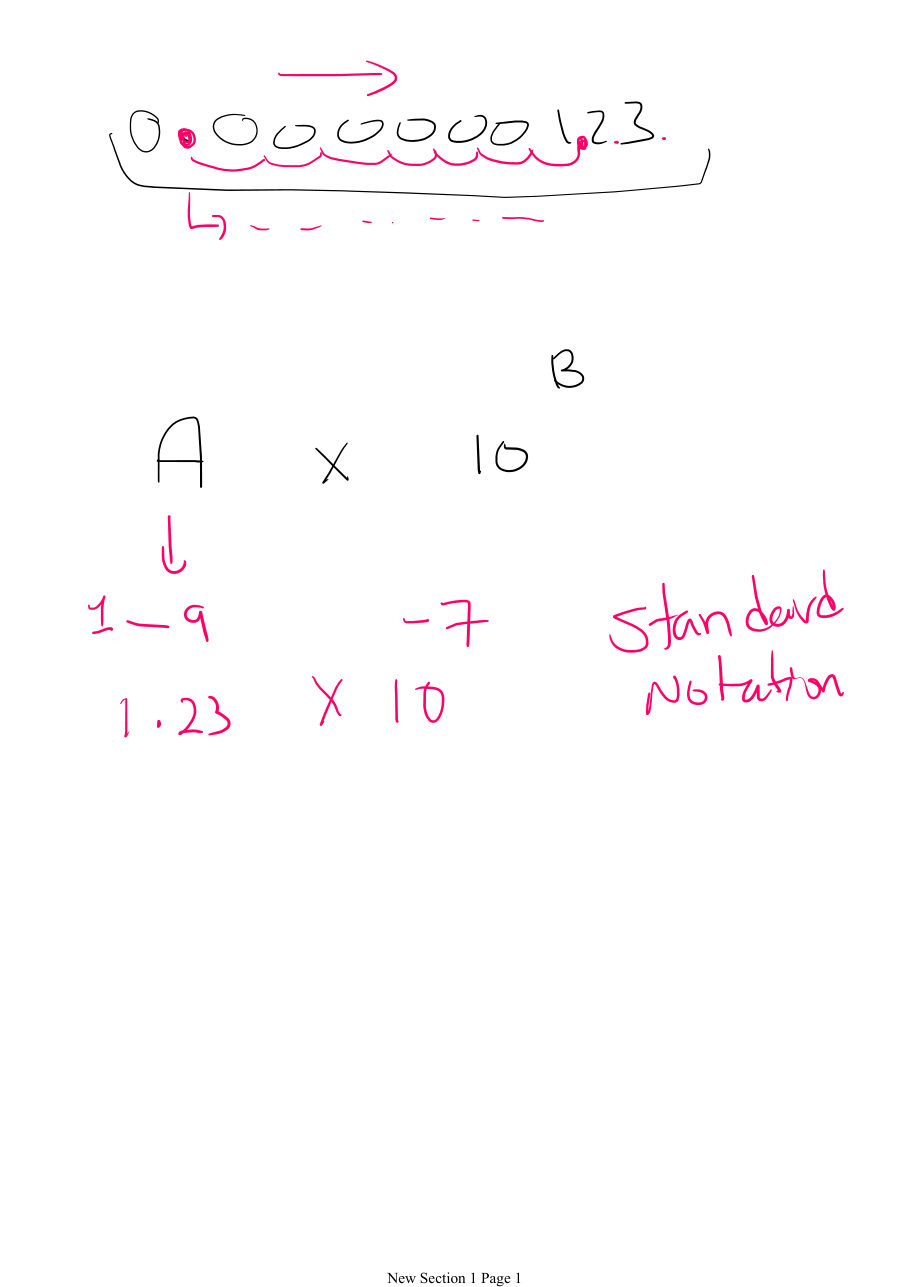 0.000000123.
B
A x 10
1 – 9
-7
Standard
1.23 x 10
Notation
New Section 1 Page 1